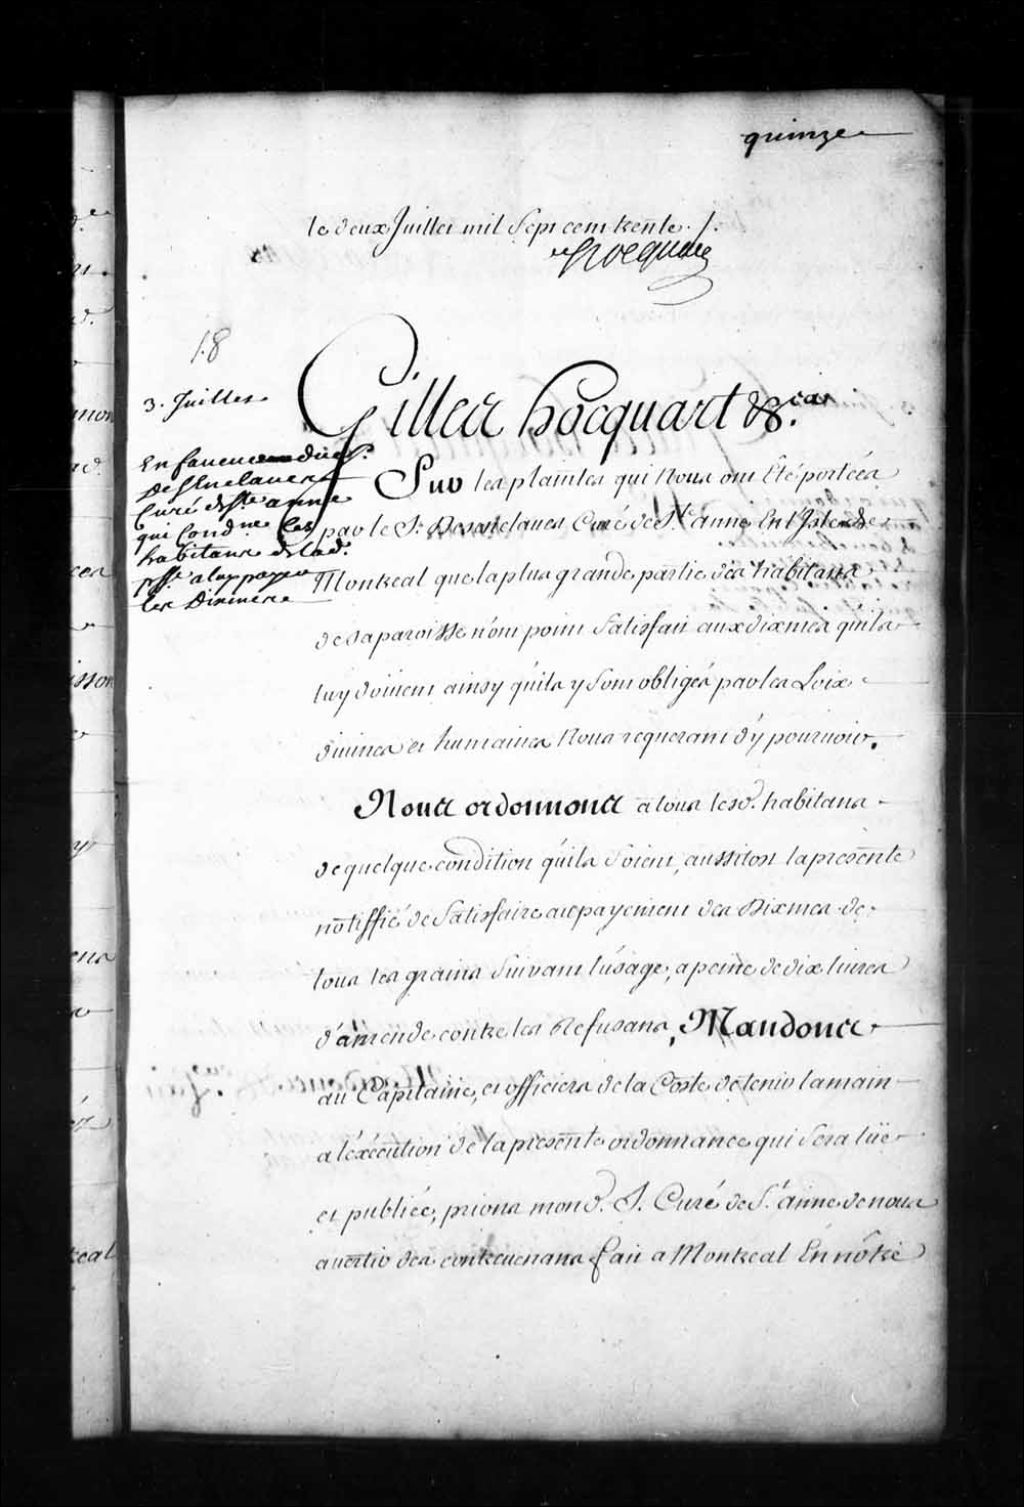 quinze
le deux Juillet mil Sept cent trente./.
Hocquart
18
3. Juillet
En faveur du S.
Desenclaves
Curé de Ste anne
qui Condne les
habitans de lad.
psse a luy payer
les Dixmes
Gilles hocquart &c.as
Sur les plaintes qui Nous ont Eté portées
par le Sr. Desenclaves Curé de Ste anne En l'Isle de
Montreal que la plus grande partie des habitans
de sa paroisse n'ont point Satisfait aux dixmes qu'ils
luy doivent ainsy qu'ils y Sont obligés par les Loix
divines et humaines Nous requerant d'y pourvoir.
Nous ordonnons a tous lesd. habitans
de quelque condition qu'ils Soient, aussitost la presente
notiffié de Satisfaire au payement des Dixmes de
tous les grains Suivant l'usage, a peine de dix livres
d'amende contre les Refusans, Mandons
au Capitaine, et officiers de la Coste de tenir la main
a l'éxécution de la presente ordonnance qui Sera lüe
et publiée, prions mond. S. Curé de Ste. anne de nous
avertir des contrevenans fait a Montreal En nôtre